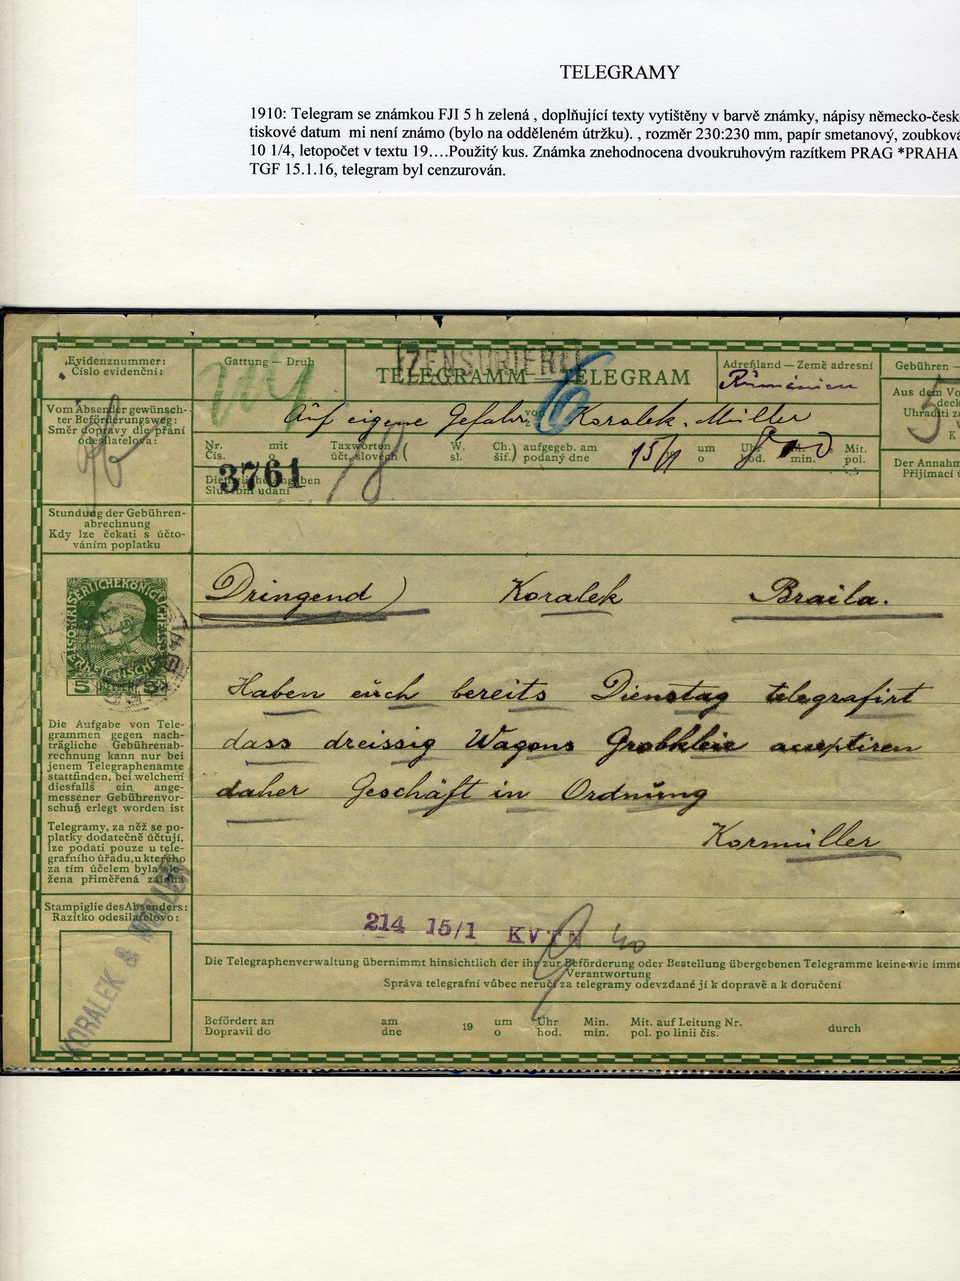 TELEGRAMY
1910: Telegram se známkou FJI 5 h zelená , doplňující texty vytištěny v barvě známky, nápisy německo-česk
tiskové datum mi není známo (bylo na odděleném útržku). , rozměr 230:230 mm, papír smetanový, zoubková
10 1/4, letopočet v textu 19....Použitý kus. Známka znehodnocena dvoukruhovým razítkem PRAG *PRAHA
TGF 15.1.16, telegram byl cenzurován.
Evidenznummer:
Číslo evidenční:
Gattung — Druh
ZENSURIERT
TELEGRAMM — TELEGRAM
Adreßland — Země adresní
Rumänien
Gebühren —
Vom Absender gewünsch-
ter Beförderungsweg:
Směr dopravy dle přání
odesilatelova:
Auf eigene Gefahr von Koralek. Müller
Aus dem Vo
deck
Uhraditi ze
K
Nr.
Čís.
mit
o
Taxworten
účt. slovech (
W.
sl.
Ch.)
šif.)
aufgegeb. am
podaný dne
15/1
um
o
Uhr
hod.
min.
Mit.
pol.
3761
18
Dienstliche Angaben
Služební udání
Der Annahm
Přijímací ú
Stundung der Gebühren-
abrechnung
Kdy lze čekati s účto-
váním poplatku
Dringend) Koralek Braila.
1908
5 5
Haben euch bereits Dienstag telegrafirt
dass dreissig Wagons Grobkleie acceptiren
daher Geschäft in Ordnung
Kormüller
Die Aufgabe von Tele-
grammen gegen nach-
trägliche Gebührenab-
rechnung kann nur bei
jenem Telegraphenamte
stattfinden, bei welchem
diesfalls ein ange-
messener Gebührenvor-
schuß erlegt worden ist
Telegramy, za něž se po-
platky dodatečně účtují,
lze podati pouze u tele-
grafního úřadu, u kterého
za tím účelem byla slo-
žena přiměřená záloha
Stampiglie des Absenders:
Razítko odesilatelovo:
KORALEK & MÜLLER
214 15/1 KVTN 40
Die Telegraphenverwaltung übernimmt hinsichtlich der ihr zur Beförderung oder Bestellung übergebenen Telegramme keine wie imme
Verantwortung
Správa telegrafní vůbec neručí za telegramy odevzdané jí k dopravě a k doručení
Befördert an
Dopravil do
am
dne
19
um
o
Uhr
hod.
Min.
min.
Mit. auf Leitung Nr.
pol. po linii čís.
durch